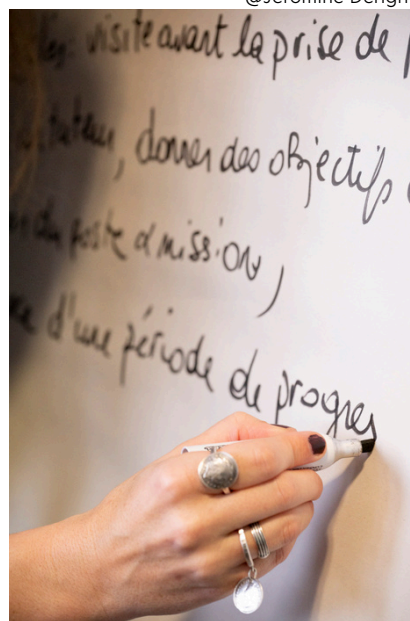 @Jeromine Derigny
visite avant la prise de
, donner des objectifs
poste d mission,
d'une période de progres